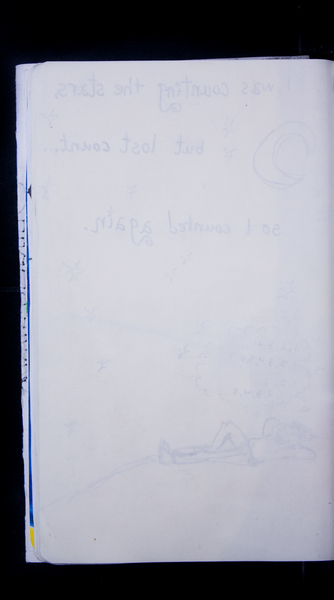 I was counting the stars,
but lost count..
so I counted again.